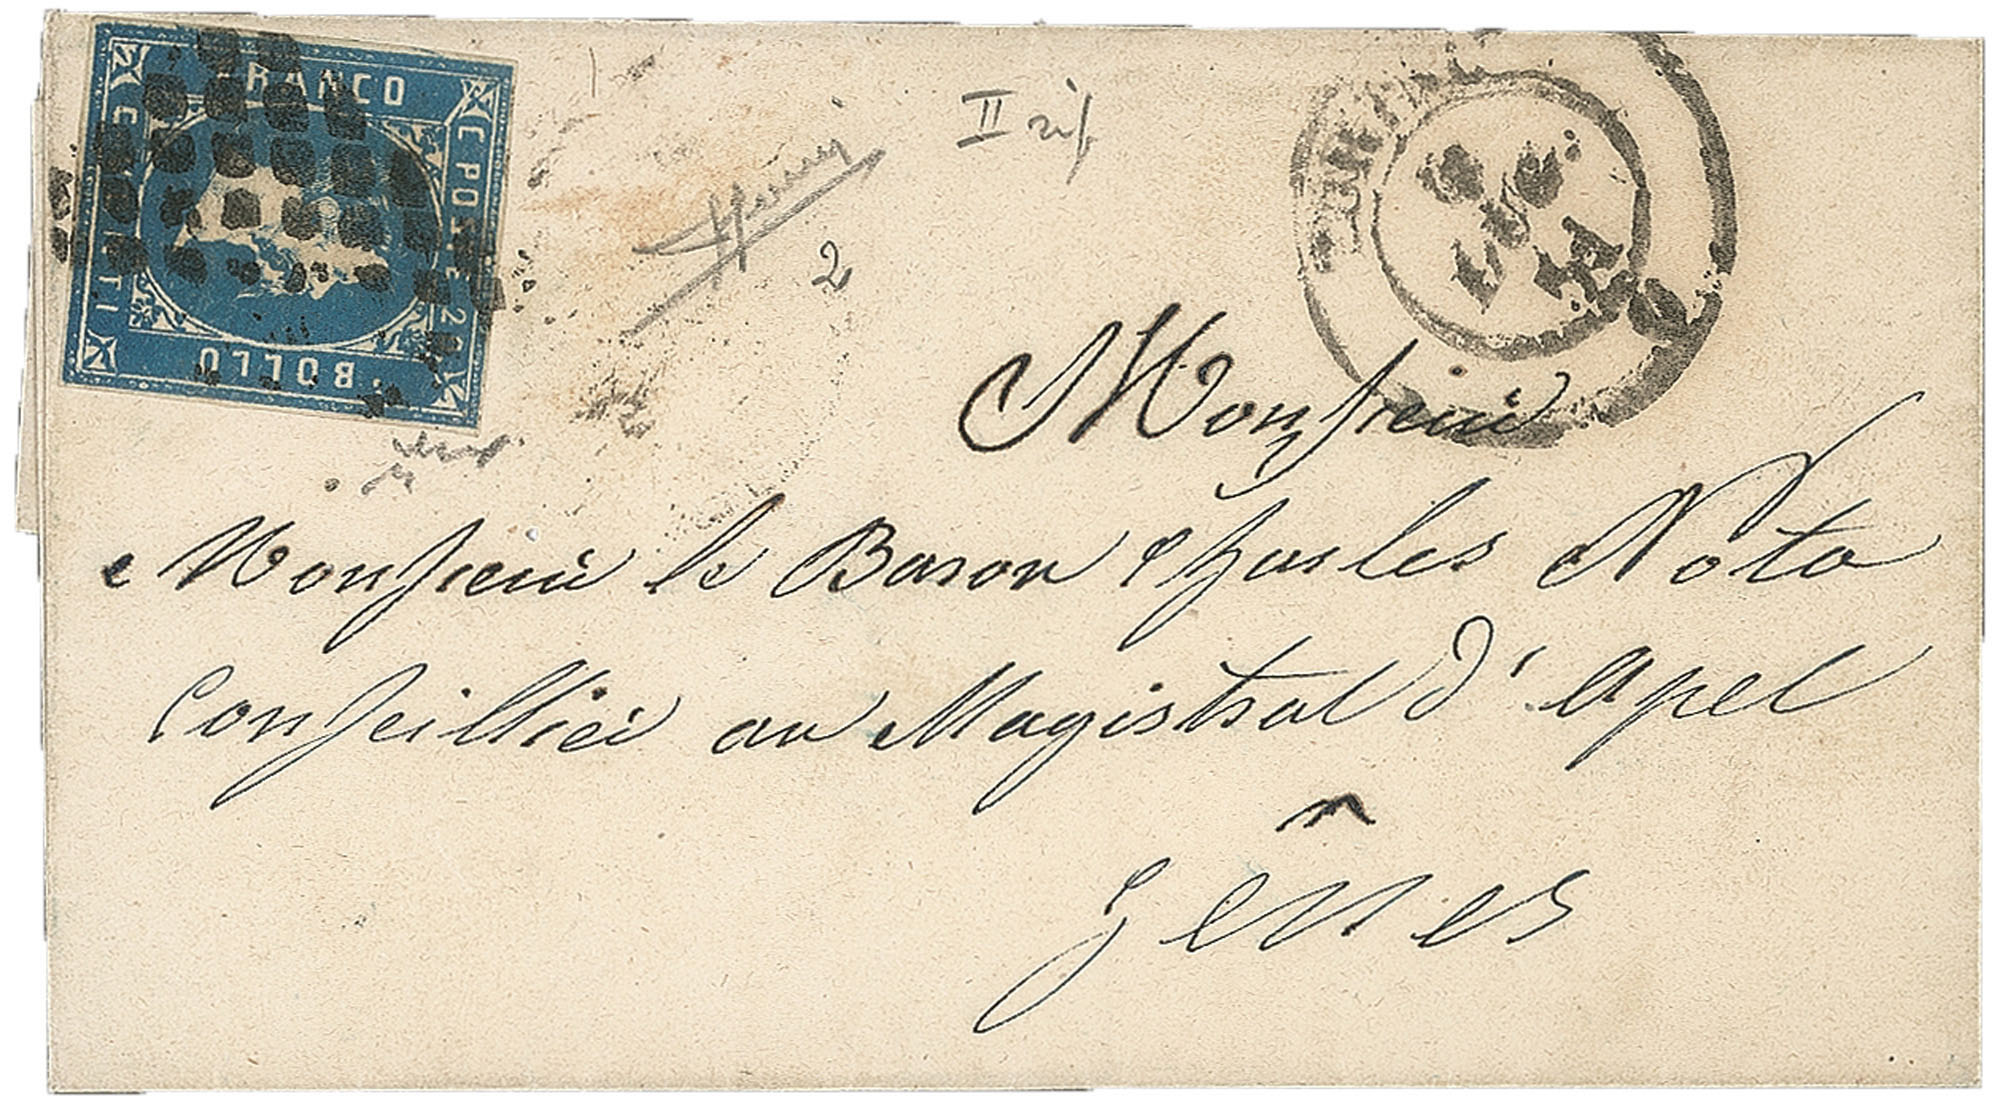 FRANCO
C. POSTE 20
CENTI
BOLLO
II
2
Monsieur
Monsieur le Baron Charles Nota
Conseillier au Magistrat d'Apel
Gênes